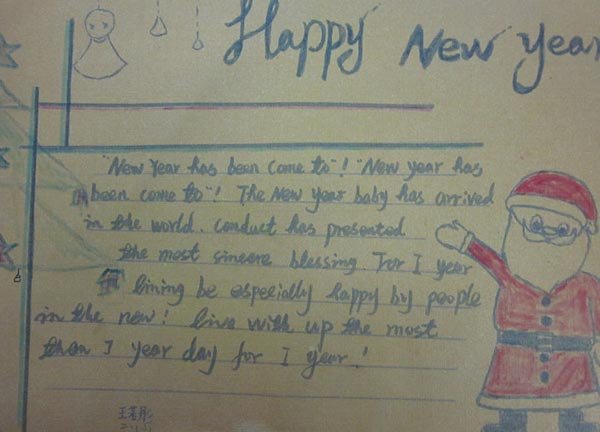 Happy New Year
"New Year has been come to"! "New year has
been come to"! The New year baby has arrived
in the world. Conduct has presented
the most sincere blessing. For I year
lining be especially happy by people
in the new! live with up the most
than I year day for I year!